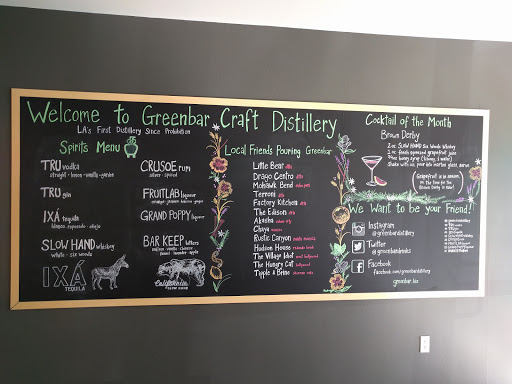 Welcome to Greenbar Craft Distillery
LA's First Distillery Since Prohibition
Spirits Menu
TRU vodka
straight · lemon · vanilla · garden
TRU gin
IXÁ tequila
blanco · reposado · añejo
SLOW HAND whiskey
white · six woods
IXÁ
TEQUILA
CRUSOE rum
silver · spiced
FRUITLAB liqueur
GRAND POPPY liqueur
BAR KEEP bitters
California
SLOW HAND
Local Friends Pouring Greenbar
Little Bear
Drago Centro
Mohawk Bend
Terroni
Factory Kitchen
The Edison
Akasha
Chaya
Rustic Canyon
Hudson House
The Village Idiot
The Hungry Cat
Tipple & Brine
Cocktail of the Month
Brown Derby
2 oz SLOW HAND Six Woods Whiskey
1 oz fresh squeezed grapefruit juice
Grapefruit is in season,
We Want to be Your Friend!
Instagram
@greenbardistillery
Twitter
@greenbardrinks
Facebook
facebook.com/greenbardistillery
greenbar.biz